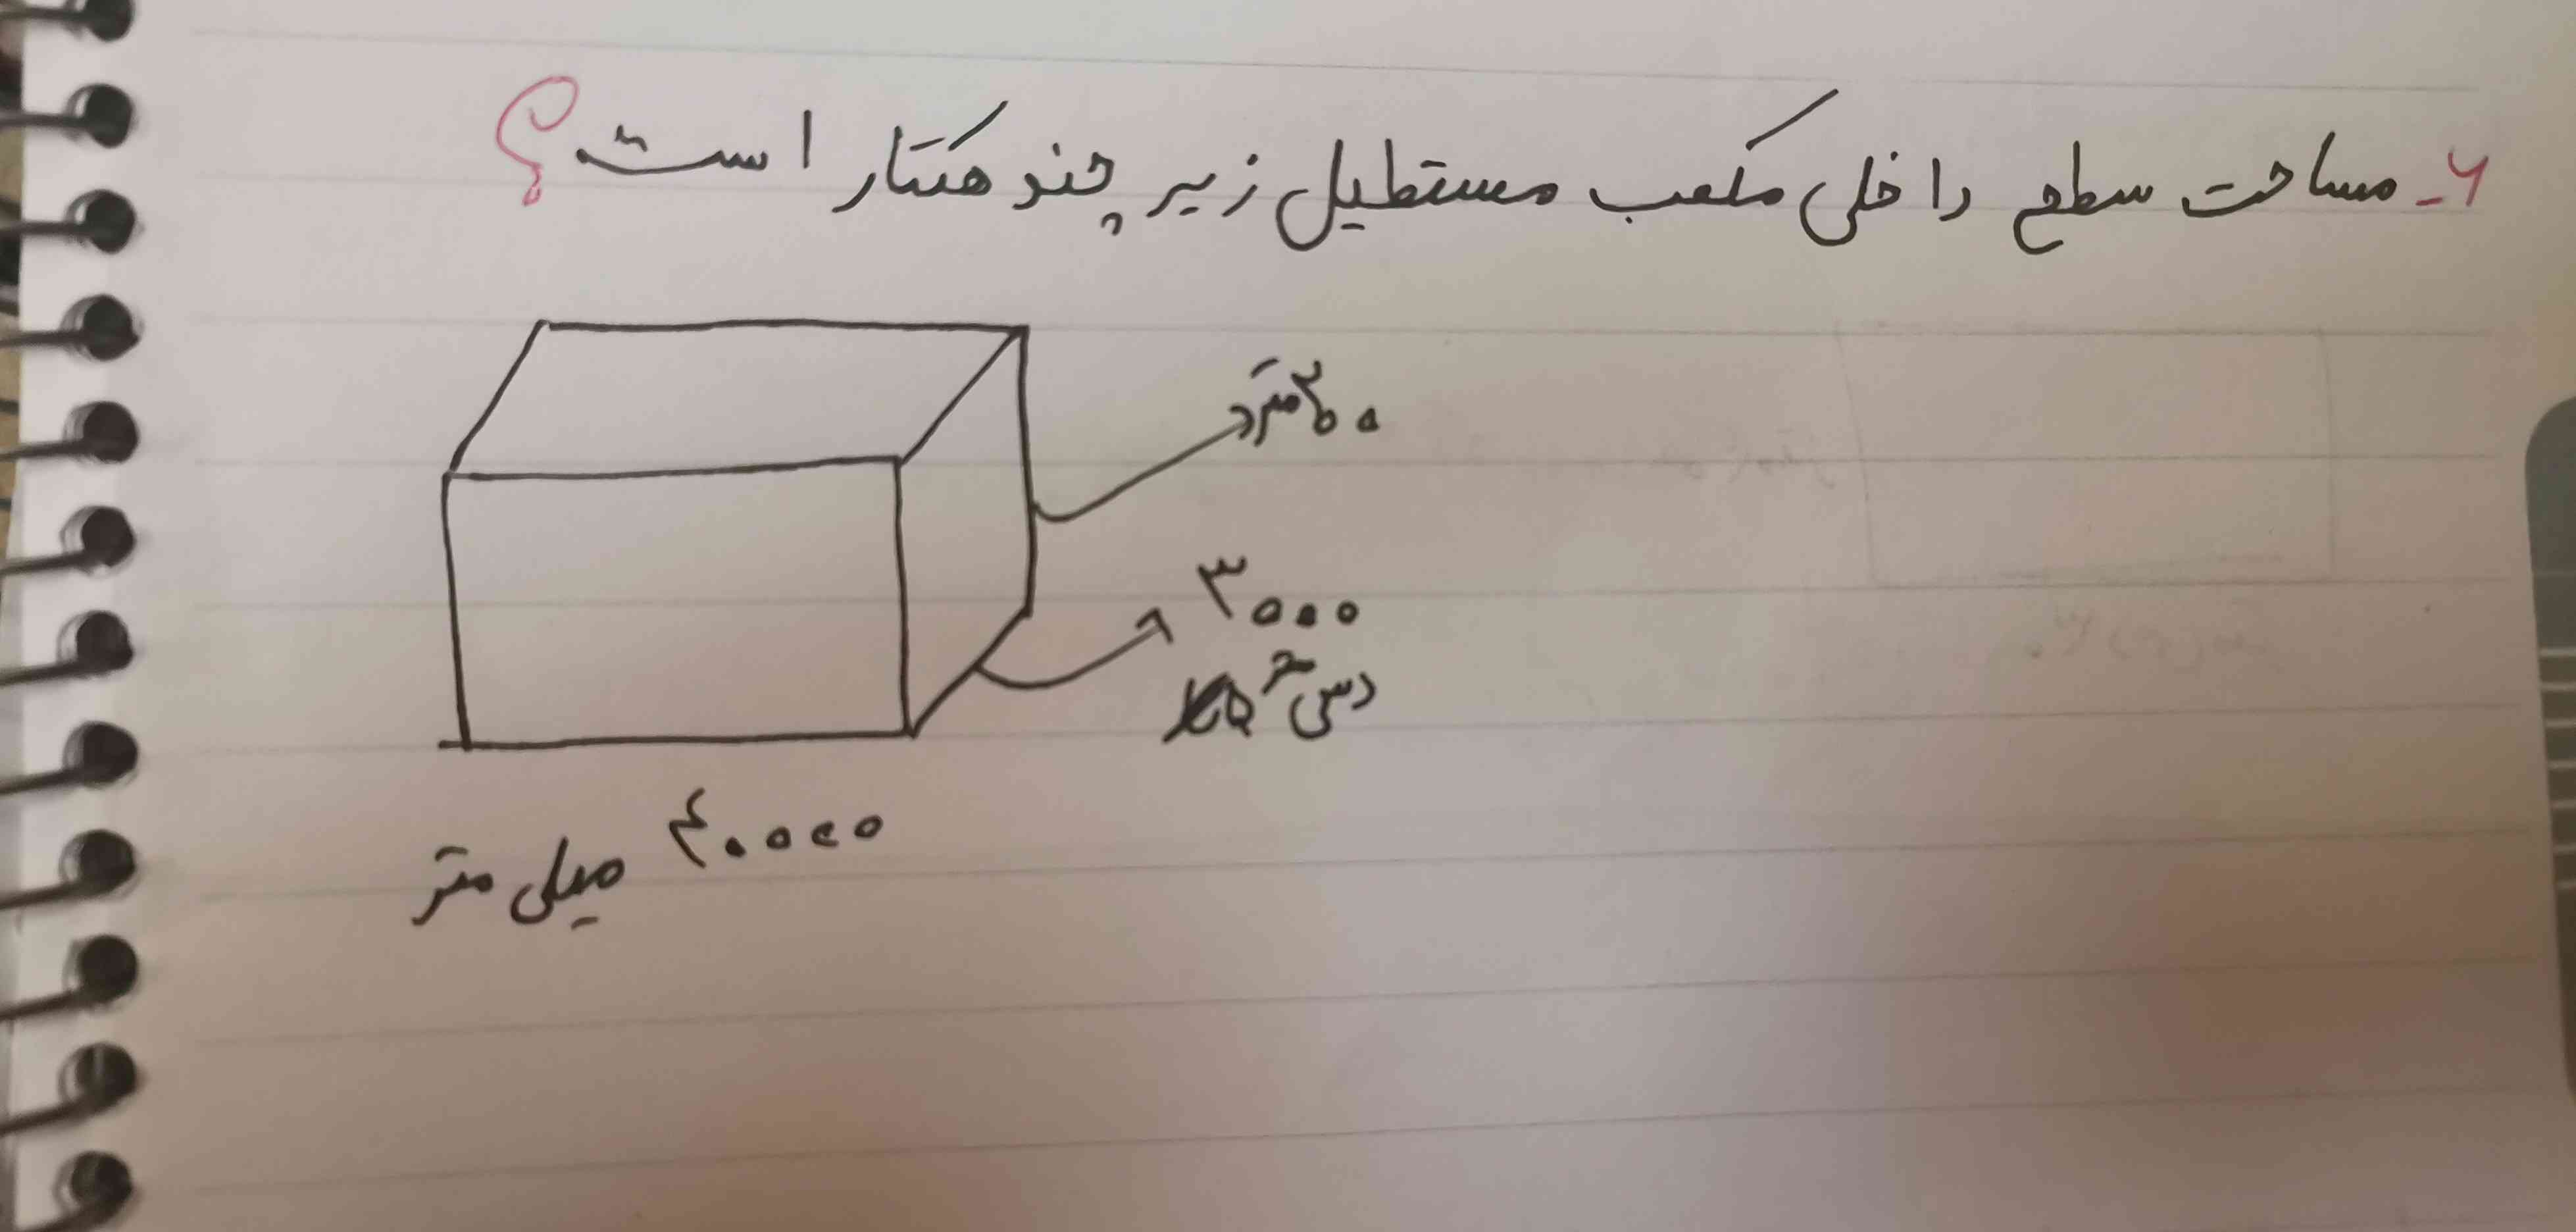 ۶- مساحت سطح داخلی مکعب مستطیل زیر چند هکتار است؟
۳۰۰ متر
۳۰۰۰
دسی متر
۴۰۰۰۰ میلی متر